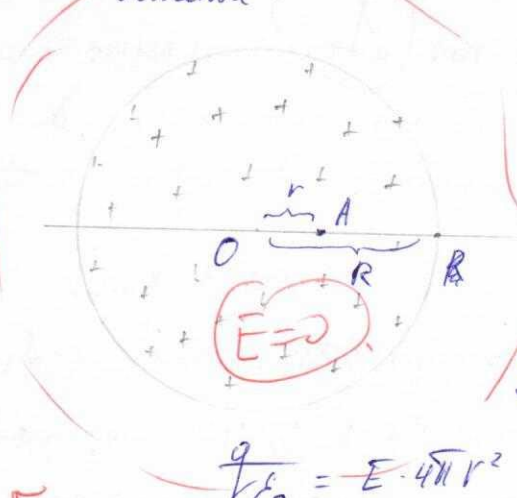 r
A
O
R
B
E=0
q/ε₀ = E·4πr²